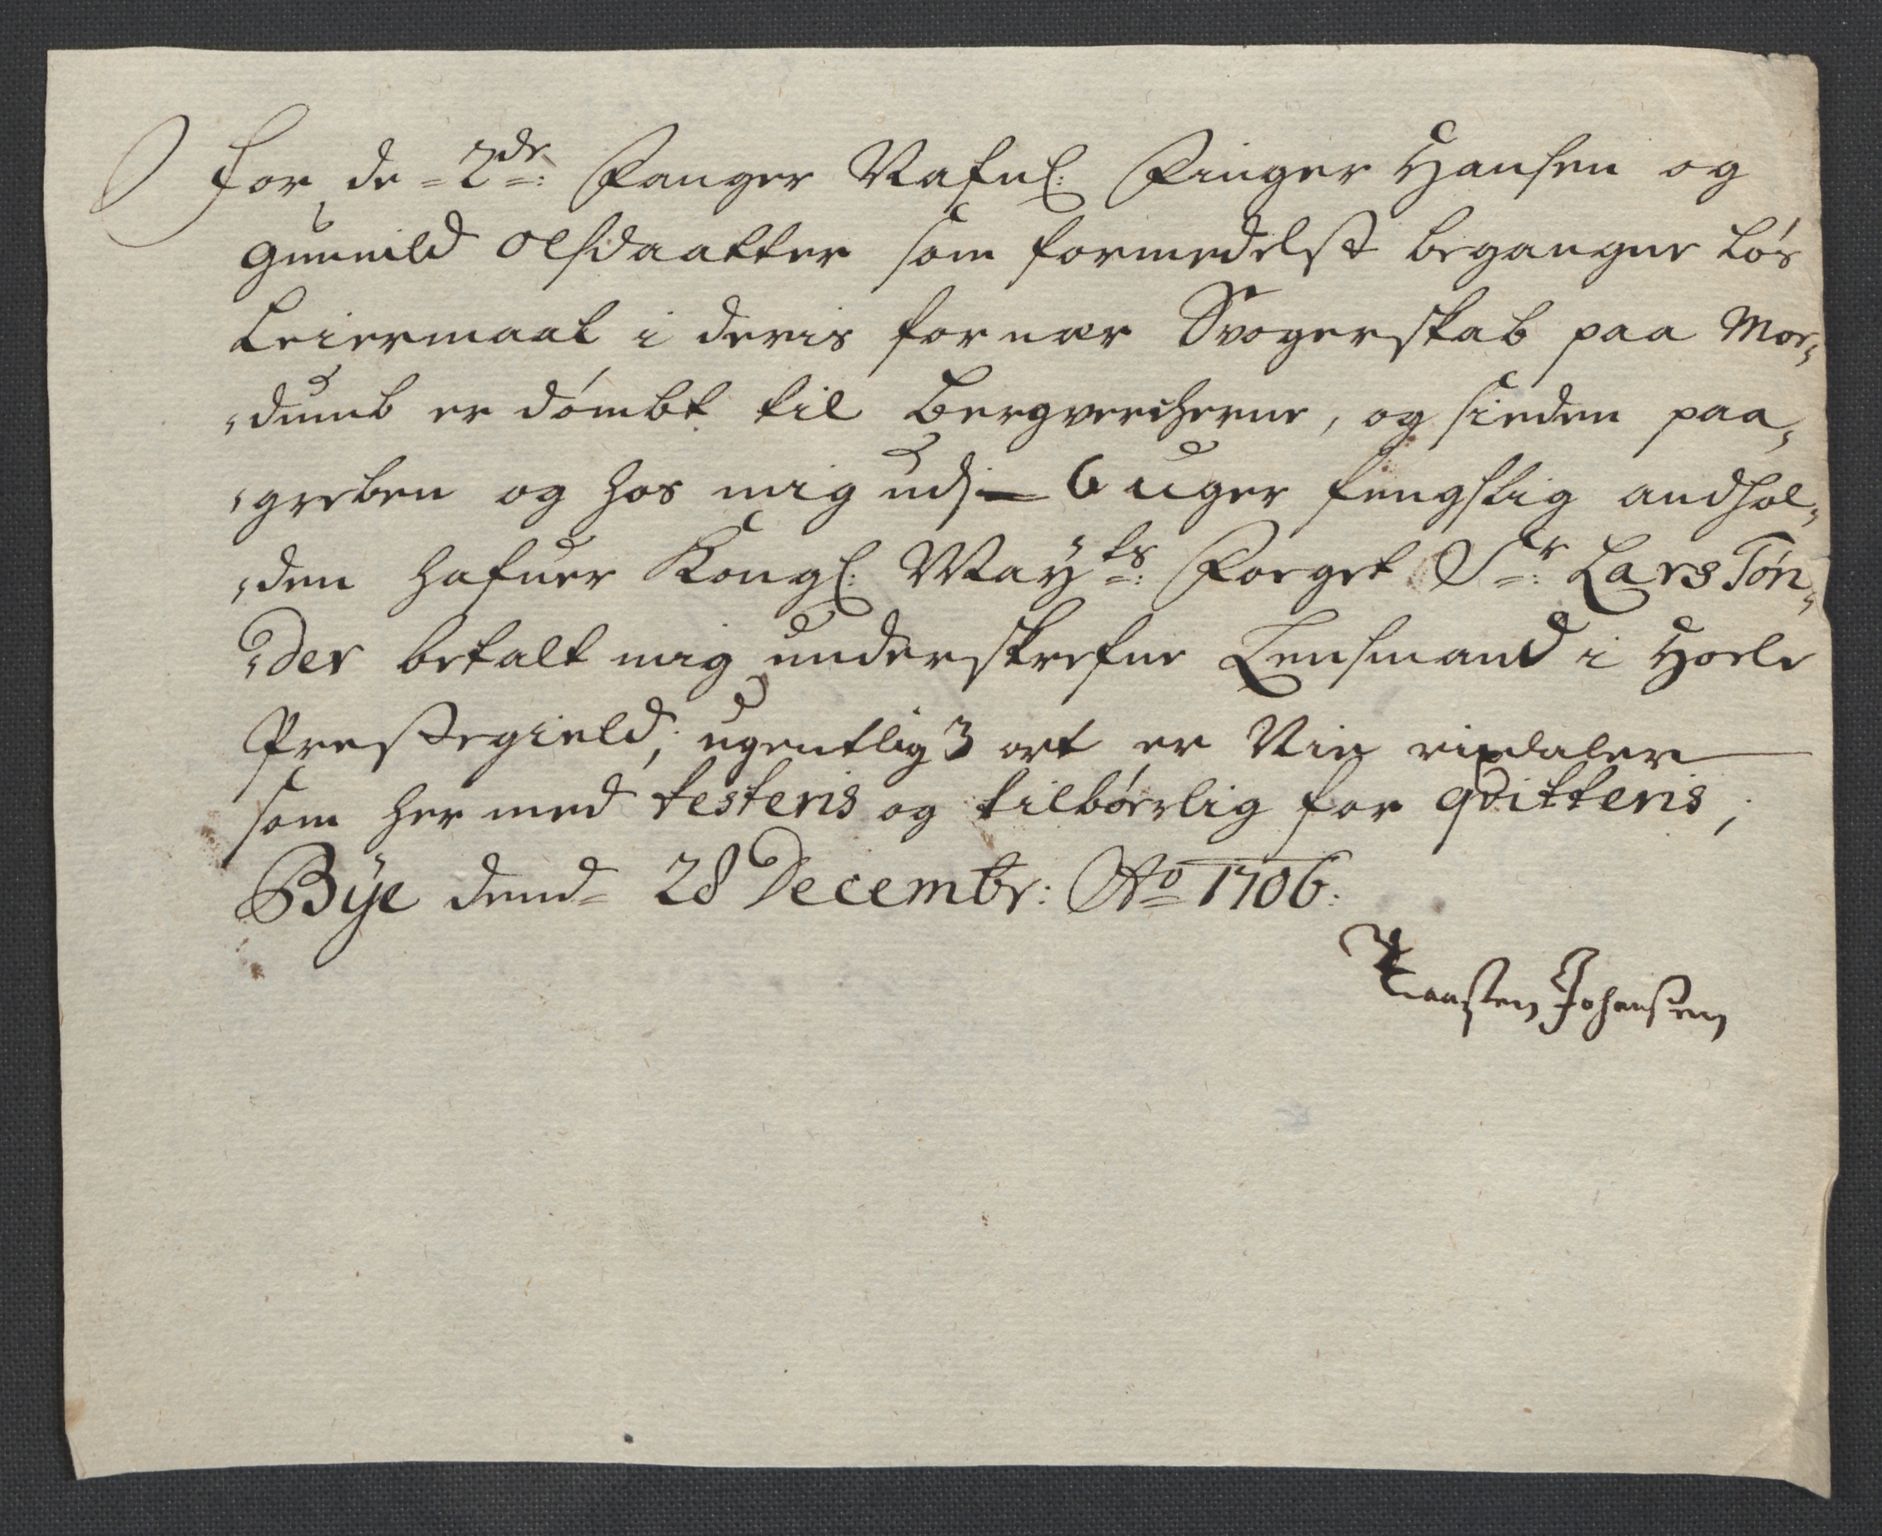 For de 2de: Fanger Nafnl: Finger Hansen og
Gunnild Olsdaatter som formedelst begangne Løs
Leiermaal i deris for nær Svogerskab paa Mor-
dumb er dømbt til Bergverckerne, og sieden paa-
greben og hos mig udj 6 uger fengslig andhol-
den hafuer Kongl: Mayts: Foeget Sr: Lars Tøn-
der betalt mig underskrefne Lensmand i Hoele
Præstegield, ugentlig 3 ort er Nie rixdaler
som her med testeris og tilbørlig for qvitteris;
Bÿe dend 28 Decembr: Ao 1706.
Johansen